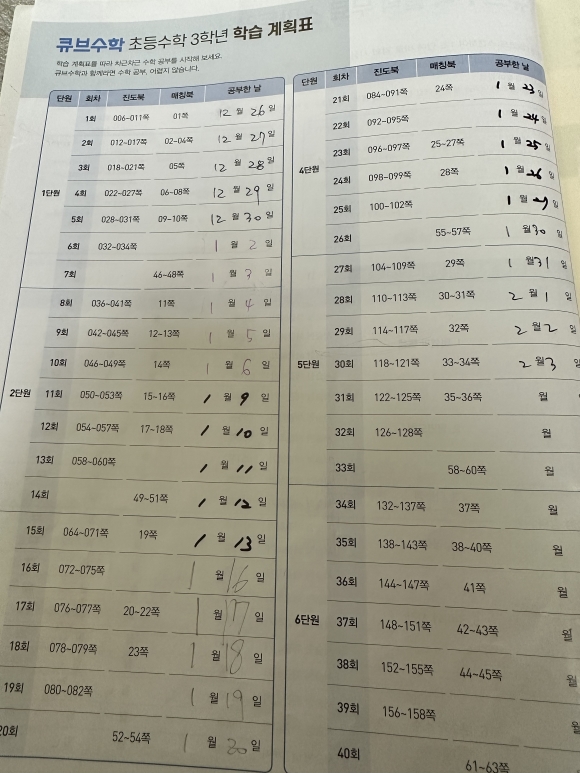 큐브수학 초등수학 3학년 학습 계획표
학습 계획표를 따라 차근차근 수학 공부를 시작해 보세요.
큐브수학과 함께라면 수학 공부, 어렵지 않습니다.
단원 회차 진도북 매칭북 공부한 날
1회 006~011쪽 01쪽 12월 26일
2회 012~017쪽 02~04쪽 12월 27일
3회 018~021쪽 05쪽 12월 28일
1단원 4회 022~027쪽 06~08쪽 12월 29일
5회 028~031쪽 09~10쪽 12월 30일
6회 032~034쪽 1월 2일
7회 46~48쪽 1월 3일
8회 036~041쪽 11쪽 1월 4일
9회 042~045쪽 12~13쪽 1월 5일
10회 046~049쪽 14쪽 1월 6일
2단원 11회 050~053쪽 15~16쪽 1월 9일
12회 054~057쪽 17~18쪽 1월 10일
13회 058~060쪽 1월 11일
14회 49~51쪽 1월 12일
15회 064~071쪽 19쪽 1월 13일
16회 072~075쪽 1월 16일
17회 076~077쪽 20~22쪽 1월 17일
18회 078~079쪽 23쪽 1월 18일
19회 080~082쪽 1월 19일
20회 52~54쪽 1월 20일
단원 회차 진도북 매칭북 공부한 날
21회 084~091쪽 24쪽 1월 23일
22회 092~095쪽 1월 24일
23회 096~097쪽 25~27쪽 1월 25일
4단원 24회 098~099쪽 28쪽 1월 26일
25회 100~102쪽 1월 27일
26회 55~57쪽 1월 30일
27회 104~109쪽 29쪽 1월 31일
28회 110~113쪽 30~31쪽 2월 1일
29회 114~117쪽 32쪽 2월 2일
5단원 30회 118~121쪽 33~34쪽 2월 3일
31회 122~125쪽 35~36쪽 월
32회 126~128쪽 월
33회 58~60쪽 월
34회 132~137쪽 37쪽 월
35회 138~143쪽 38~40쪽 월
36회 144~147쪽 41쪽 월
6단원 37회 148~151쪽 42~43쪽 월
38회 152~155쪽 44~45쪽 월
39회 156~158쪽 월
40회 61~63쪽